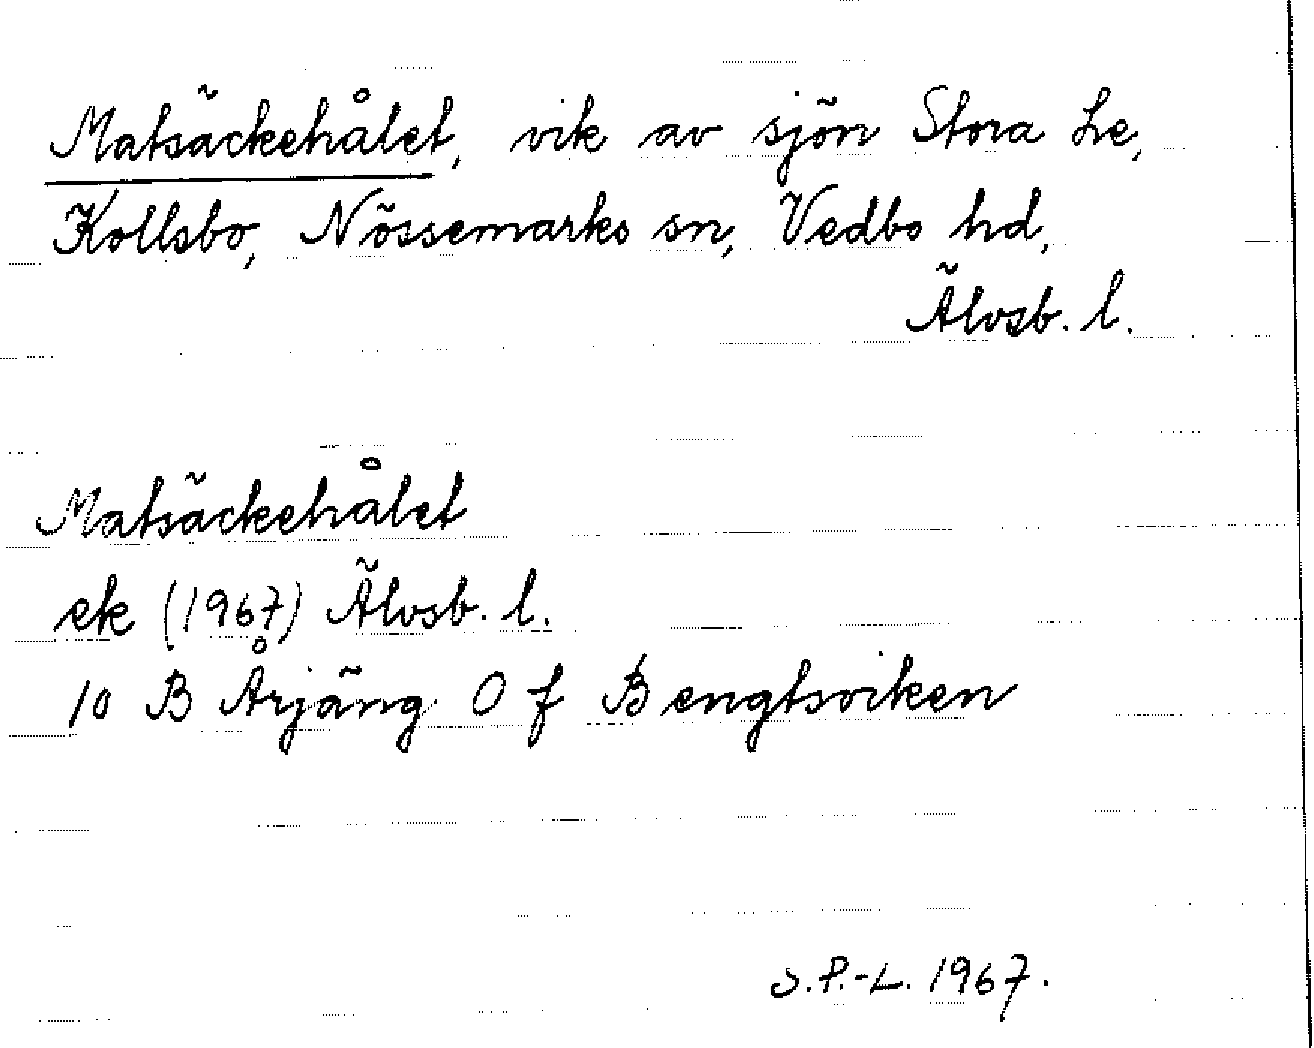 Matsäckehålet, vik av sjön Stora Le,
Kollsbo, Nössemarks sn, Vedbo hd,
Älvsb. l.
Matsäckehålet
ek (1967) Älvsb. l.
10 B Årjäng 0 f Bengtsviken
S.P.-L. 1967.